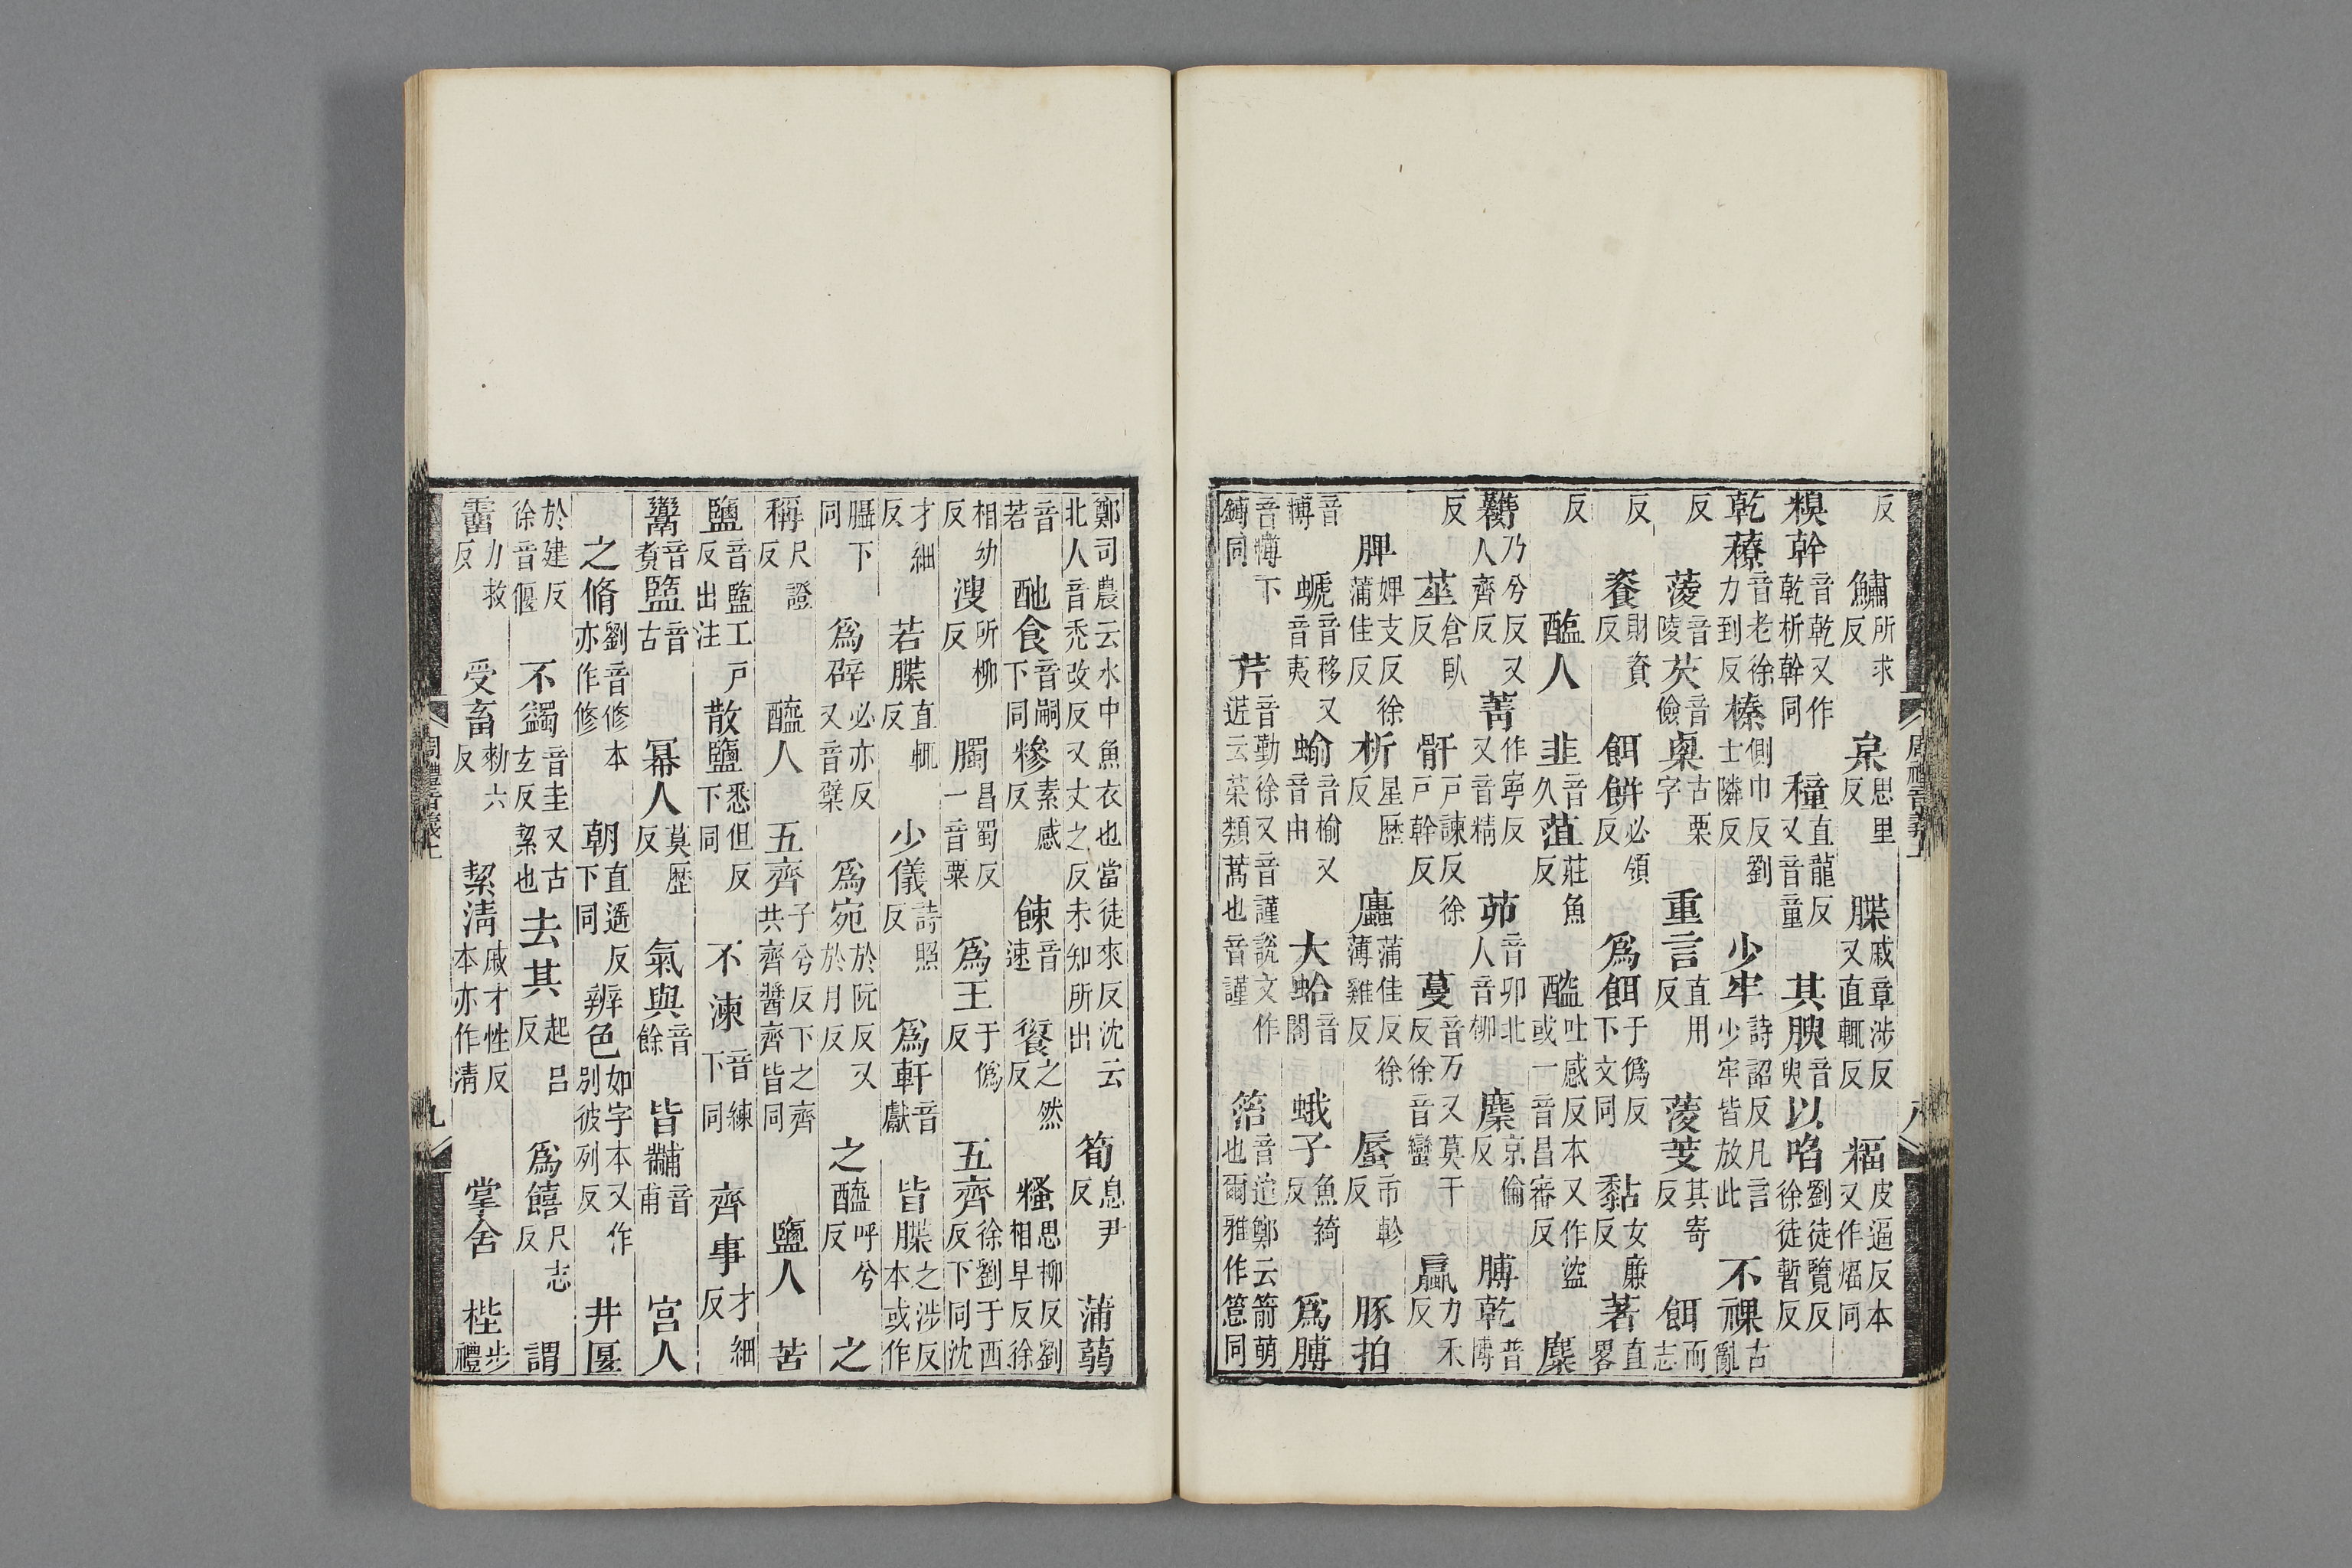 反 鱐所求反 枲思里反 牒戚章涉反又直輒反 楅皮逼反本又作煏同
糗幹音乾又作乾析幹同 穜直龍反又音童 其腴音臾 以啗劉徒覽反徐徒暫反
乾䕩音老徐力到反 榛側巾反劉士隣反 少牢詩詔反凡言少牢皆放此 不祼古亂
反 蔆音陵 芡音儉 㮚古栗字 重言直用反 蔆芰其寄反 餌而志
反 餈財資反 餌餅必領反 爲餌于僞反下文同 黏女廉反 著直畧
反 醢人 韭音久 菹莊魚反 醓吐感反本又作盜或一音昌審反 麋
臡乃兮反又人齊反 菁作寧反又音精 茆音卯北人音柳 麇京倫反 膊乾普博
反 莝倉臥反 骭戶諫反徐戶幹反 蔓音万又莫干反徐音蠻 蠃力禾反
脾婢支反徐蒲佳反 析星歷反 蠯蒲佳反徐薄雞反 蜃市軫反 豚拍
音博 螔音移又音夷 蝓音榆又音由 大蛤音閤 蛾子魚綺反 爲膊
音博下鎛同 芹音勤徐又音謹說文作云菜類蒿也音謹 箈音迨鄭云箭萌也爾雅作䈚同
周禮音義上 八
鄭司農云水中魚衣也當徒來反沈云北人音禿改反又丈之反未知所出 筍息尹反 蒲蒻
音若 酏食音嗣下同 糝素感反 餗音速 餰之然反 糔思柳反劉相早反徐
相幼反 溲所柳反 臅昌蜀反一音粟 爲王于僞反 五齊徐劉于西反下同沈
才細反 若牒直輒反 少儀詩照反 爲軒音獻 皆牒之涉反本或作
䐑下同 爲辟必亦反又音檗 爲宛於阮反又於月反 之醯呼兮反 之
稱尺證反 醯人 五齊子兮反下之齊共齊醬齊皆同 鹽人 苦
鹽音盬工戶反出注 散鹽悉但反下同 不湅音練下同 齊事才細反
鬻音煑 盬音古 冪人莫歷反 氣與音餘 皆黼音甫 宮人
之脩劉音修本亦作修 朝直遥反下同 辨色如字本又作別彼列反 井匽
於建反徐音偃 不蠲音圭又古玄反絜也 去其起呂反 爲饎尺志反 謂
霤力救反 受畜勑六反 絜清戚才性反本亦作凊 掌舍 梐步禮
周禮音義上 九